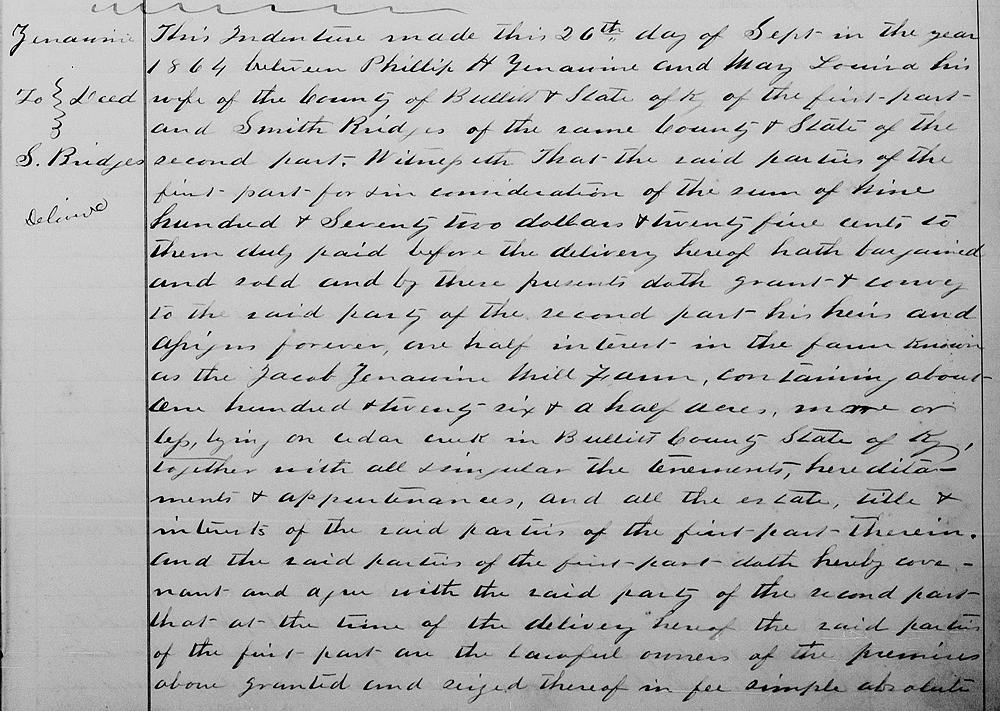 Zenawine
To } Deed
S. Bridges
Delivered
This Indenture made this 26th day of Sept in the year
1864 between Phillip H Zenawine and Mary Louisa his
wife of the County of Bullitt & State of Ky of the first part
and Smith Bridges of the same County & State of the
second part, Witnesseth That the said parties of the
first part for & in consideration of the sum of Nine
hundred & Seventy two dollars & twenty five cents to
them duly paid before the delivery hereof hath bargained
and sold and by these presents doth grant & convey
to the said party of the second part his heirs and
assigns forever, one half interest in the farm known
as the Jacob Zenawine Mill Farm, containing about
One hundred & twenty six & a half acres, more or
less, lying on cedar creek in Bullitt County State of Ky,
together with all & singular the tenements, heredita-
ments & appurtenances, and all the estate, title &
interests of the said parties of the first part therein.
And the said parties of the first part doth hereby cove-
nant and agree with the said party of the second part
that at the time of the delivery hereof the said parties
of the first part are the lawful owners of the premises
above granted and seized thereof in fee simple absolute